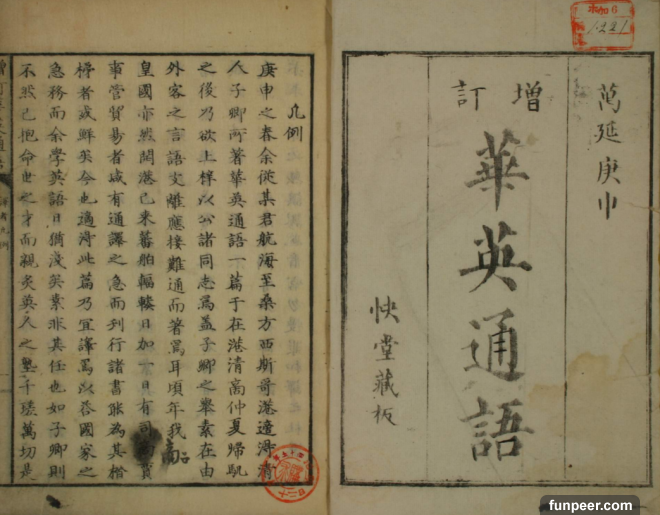 萬延庚申
增訂
華英通語
快堂藏板
凡例
庚申之春余從某君航海至桑方西斯哥港邊得清
人子卿所著華英通語一篇于在港清商仲夏歸帆
之後乃欲上梓以公諸同志焉蓋子卿之舉素在由
外客之言語文雖應接難通而著焉耳頃年我
皇國亦然開港已來蕃舶輻輳日加一日有司商賈
事管貿易者咸有通譯之急而刊行諸書能為其楷
梯者或鮮矣今也適得此篇乃宜譯焉以啓國家之
急務而余學英語日猶淺矣素非其任也如子卿則
不然已抱命世之才而親炙英人之塾千磋萬切是
1221
funpeer.com